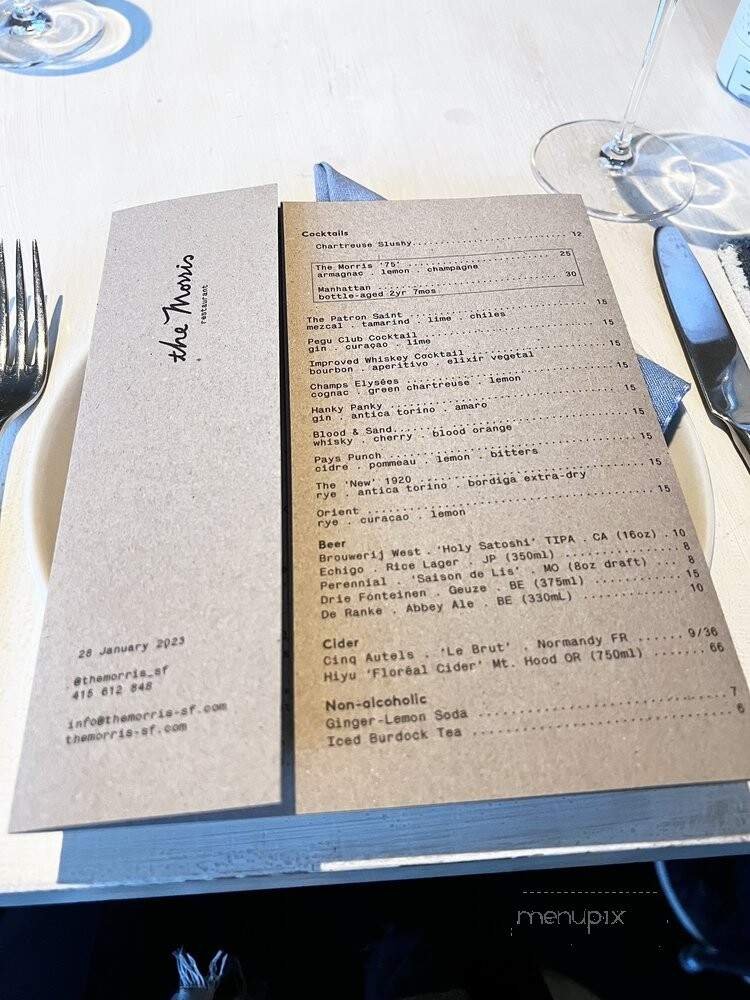 the Morris
restaurant
28 January 2023
@themorris_sf
415 612 848
info@themorris-sf.com
themorris-sf.com
Cocktails
Chartreuse Slushy 12
The Morris '75' 25
armagnac . lemon . champagne
Manhattan 30
bottle-aged 2yr 7mos
The Patron Saint 15
mezcal . tamarind . lime . chiles
Pegu Club Cocktail 15
gin . curaçao . lime
Improved Whiskey Cocktail 15
bourbon . aperitivo . elixir vegetal
Champs Elysées 15
cognac . green chartreuse . lemon
Hanky Panky 15
gin . antica torino . amaro
Blood & Sand 15
whisky . cherry . blood orange
Pays Punch 15
cidre . pommeau . lemon . bitters
The 'New' 1920 15
rye . antica torino . bordiga extra-dry
Orient 15
rye . curacao . lemon
Beer
Brouwerij West . 'Holy Satoshi' TIPA . CA (16oz) . 10
Echigo . Rice Lager . JP (350ml) 8
Perennial . 'Saison de Lis' . MO (8oz draft) 8
Drie Fonteinen . Geuze . BE (375ml) 15
De Ranke . Abbey Ale . BE (330mL) 10
Cider
Cinq Autels . 'Le Brut' . Normandy FR 9/36
Hiyu 'Floréal Cider' Mt. Hood OR (750ml) 66
Non-alcoholic
Ginger-Lemon Soda 7
Iced Burdock Tea 6
menupix